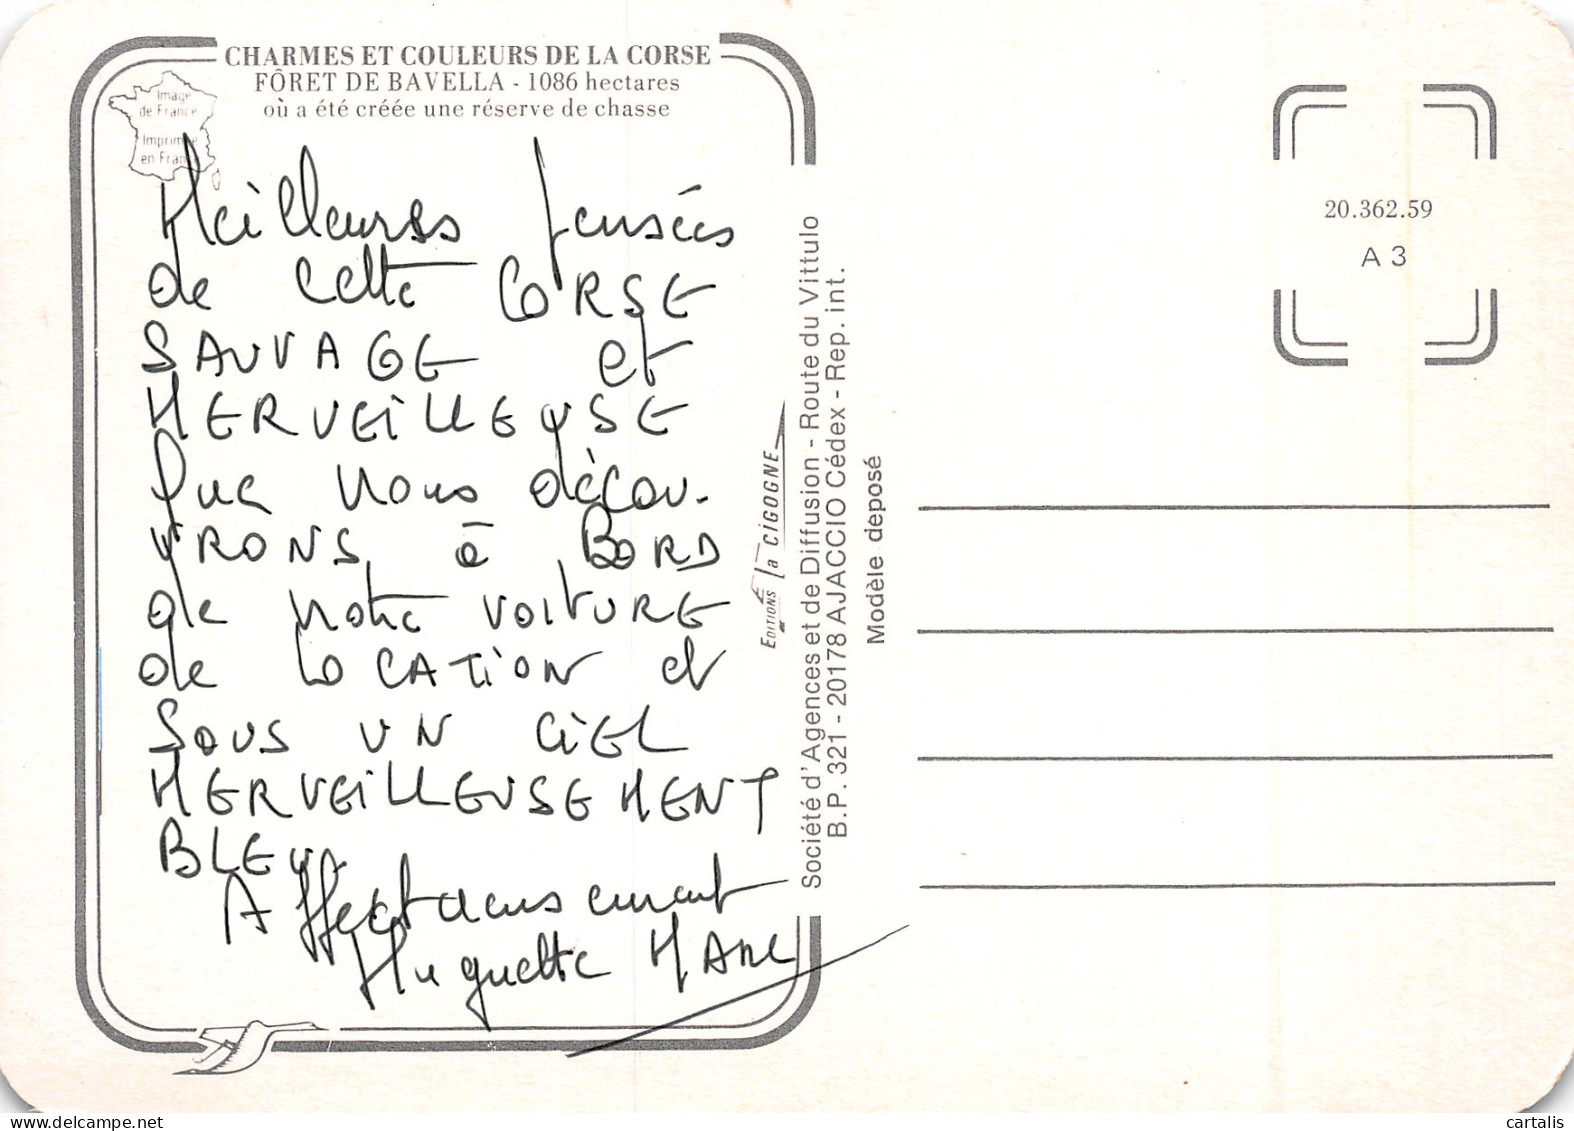 CHARMES ET COULEURS DE LA CORSE
FÔRET DE BAVELLA - 1086 hectares
où a été créée une réserve de chasse
Image
de France
Imprimé
en France
Meilleures pensées
de cette CORSE
SAUVAGE et
MERVEILLEUSE
que nous décou-
VRONS à BORD
de notre VOITURE
de LOCATION et
SOUS UN CIEL
MERVEILLEUSEMENT
BLEU.
Affectueusement
Huguette
EDITIONS la CIGOGNE
Société d'Agences et de Diffusion - Route du Vittulo
B.P. 321 - 20178 AJACCIO Cédex - Rep. int.
Modèle deposé
20.362.59
A 3
cartalis